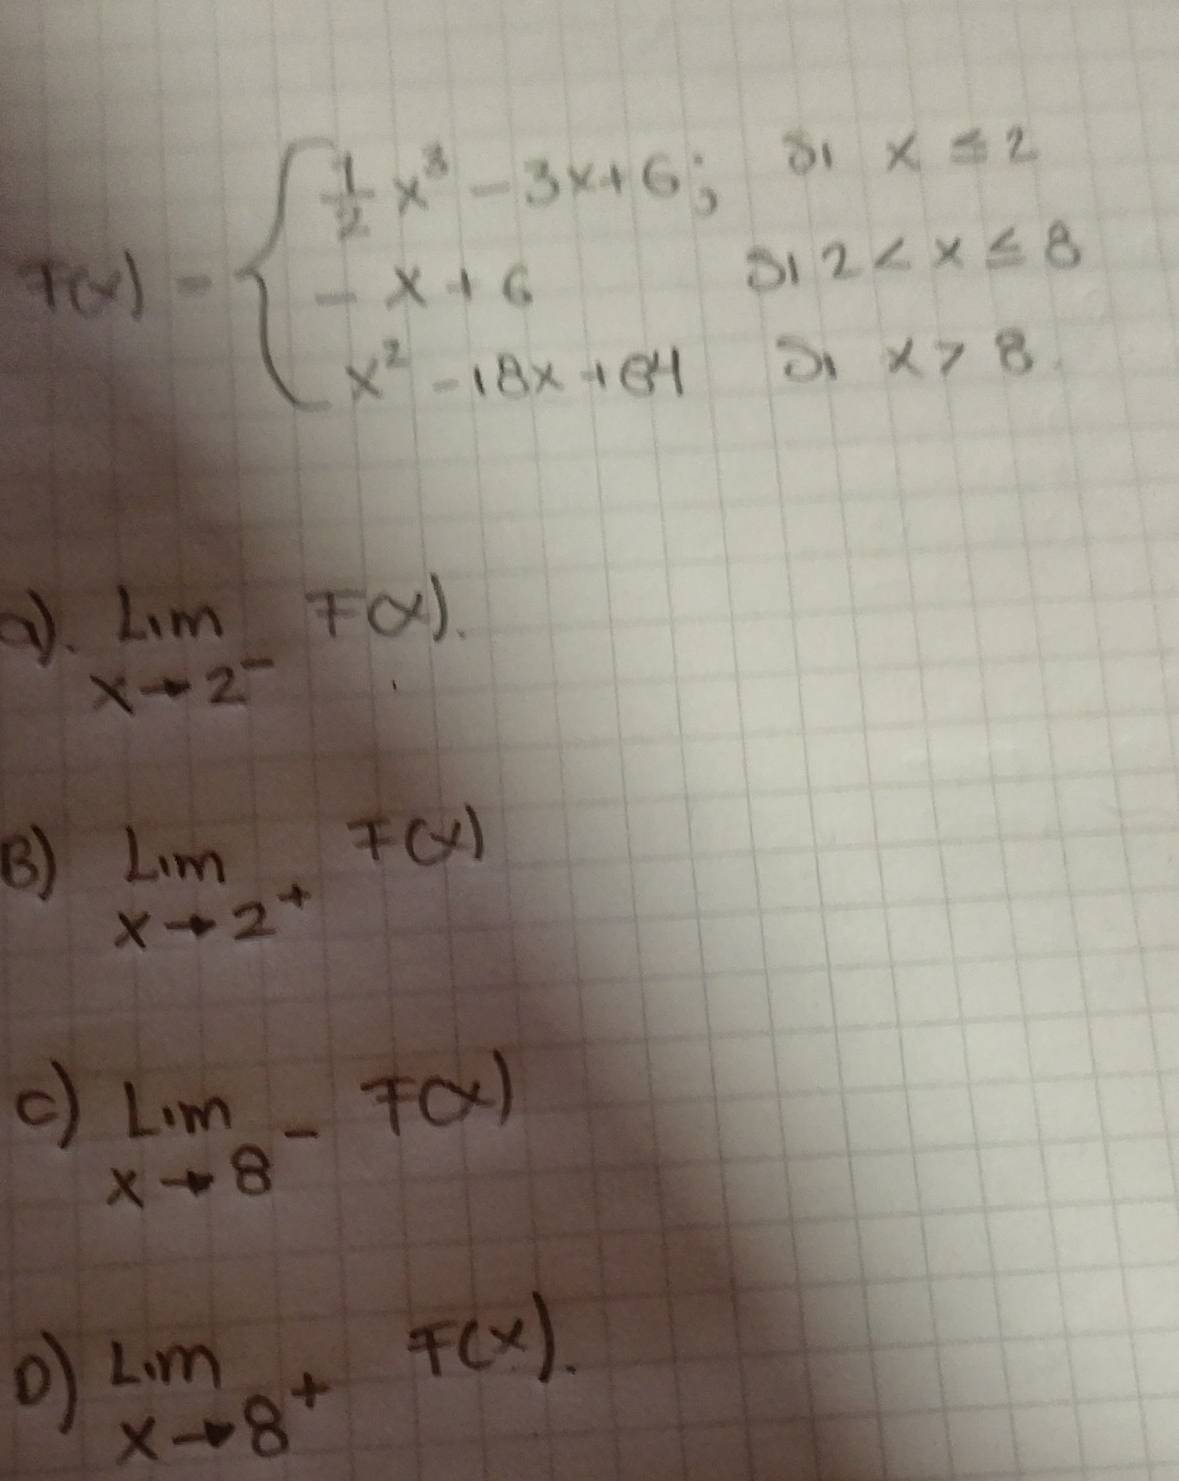 F(x) = { 1/2 x³ - 3x + 6; si x ≤ 2
- x + 6 si 2 < x ≤ 8
x² - 18x + 84 si x > 8
a). Lim x→2⁻ F(x).
B) Lim x→2⁺ F(x)
c) Lim x→8⁻ F(x)
D) Lim x→8⁺ F(x).